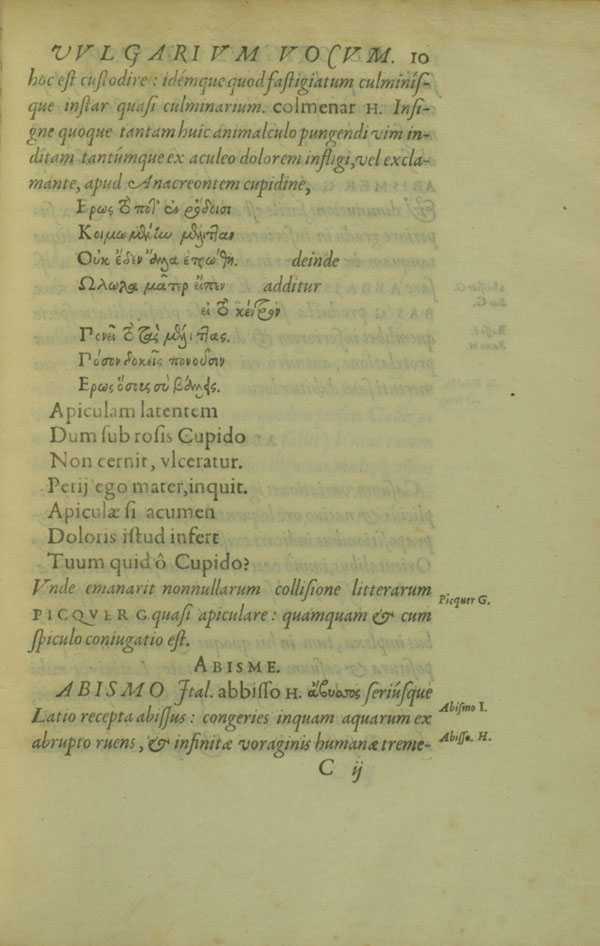 VVLGARIVM VOCVM. 10
hoc est custodire : idémque quod fastigiatum culminís-
que instar quasi culminarium. colmenar H. Insi-
gne quoque tantam huic animalculo pungendi vim in-
ditam tantúmque ex aculeo dolorem infligi, vel excla-
mante, apud Anacreontem cupidine,
Ερως ὅ ποτ' ἐν ῥόδοισι
Κοιμωμένίω μέλιτταν
Οὐκ ἔδεν ἀλλα ετρώθη. deinde
Ωλωλα μᾶτερ εἶπεν additur
ει ὅ κέντρον
Πονεῖ ὅ τᾶς μελίττας.
Πόσον δοκεῖς πονοῦσιν
Ερως ὅσοις συ βάλλῃς.
Apiculam latentem
Dum sub rosis Cupido
Non cernit, vlceratur.
Perij ego mater, inquit.
Apiculæ si acumen
Doloris istud infert
Tuum quid ô Cupido?
Vnde emanarit nonnullarum collisione litterarum
PICQVER G. quasi apiculare : quamquam & cum
spiculo coniugatio est.
Picquer G.
ABISME.
ABISMO Ital. abbisso H. ἄβυσσος seriúsque
Latio recepta abissus : congeries inquam aquarum ex
abrupto ruens, & infinitæ voraginis humanæ treme-
Abismo I.
Abisso. H.
C ij